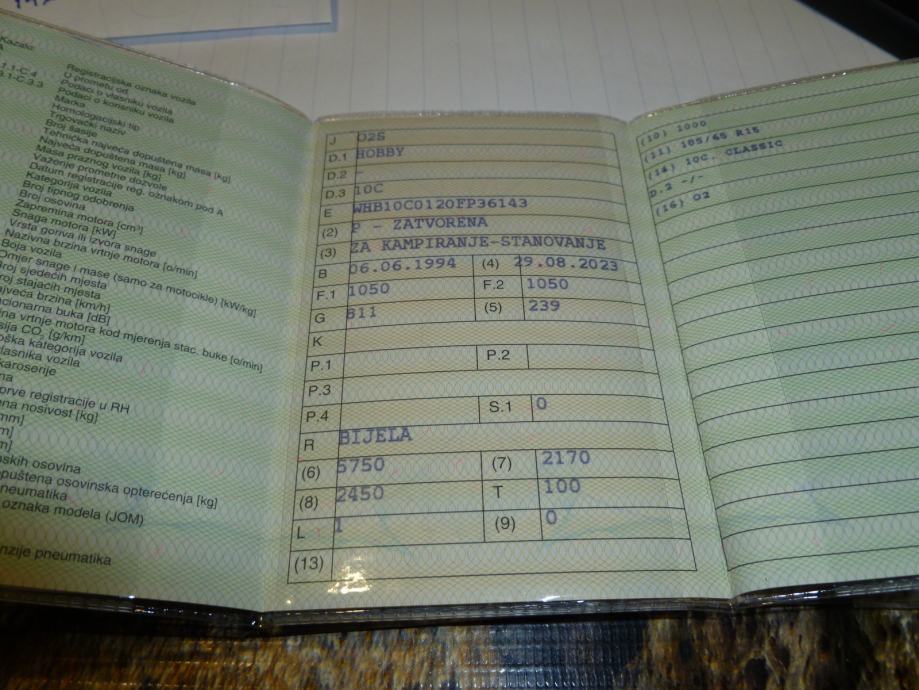 Kazalo:
A
Registracijska oznaka vozila
U prometu od
1.1-C.4 Podaci o vlasniku vozila
3.1-C.3.3 Podaci o korisniku vozila
Marka
Homologacijski tip
Trgovački naziv
Broj šasije
Tehnička najveća dopuštena masa [kg]
Najveća dopuštena masa [kg]
Masa praznog vozila [kg]
Važenje prometne dozvole
Datum registracije reg. oznakom pod A
Kategorija vozila
Broj tipnog odobrenja
Broj osovina
Zapremina motora [cm³]
Snaga motora [kW]
Vrsta goriva ili izvora snage
Nazivna brzina vrtnje motora [o/min]
Boja vozila
Omjer snage i mase (samo za motocikle) [kW/kg]
Broj sjedećih mjesta
Broj stajaćih mjesta
Najveća brzina [km/h]
cionarna buka [dB]
na vrtnje motora kod mjerenja stac. buke [o/min]
sija CO₂ [g/km]
oška kategorija vozila
vlasnika vozila
karoserije
na
prve registracije u RH
ena nosivost [kg]
mm]
m]
m]
nskih osovina
opuštena osovinska opterećenja [kg]
neumatika
oznaka modela (JOM)
nzije pneumatika
J O2S
D.1 HOBBY
D.2 -
D.3 10C
E WHB10C0120FP36143
(2) P - ZATVORENA
(3) ZA KAMPIRANJE-STANOVANJE
B 06.06.1994 (4) 29.08.2023
F.1 1050 F.2 1050
G 811 (5) 239
K
P.1 P.2
P.3
P.4 S.1 0
R BIJELA
(6) 5750 (7) 2170
(8) 2450 T 100
L 1 (9) 0
(13)
(10) 1000
(11) 185/65 R15
(14) 10C, CLASSIC
D.2 -/-
(16) O2